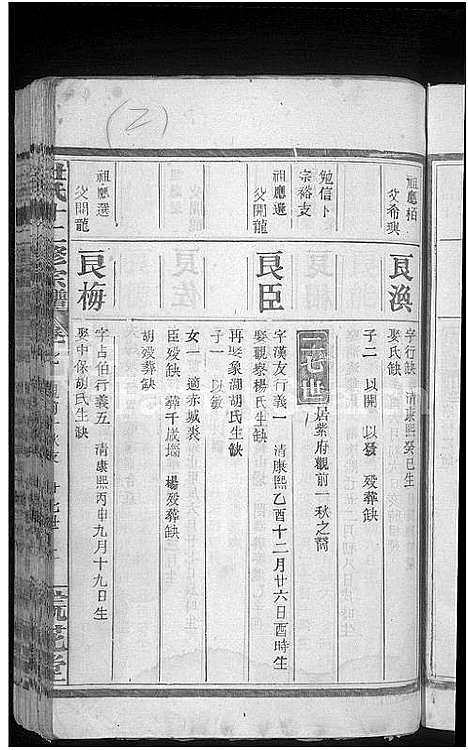 (2)
祖應栢
父希璵
良渙
字行缺 清康熙癸巳生
娶氏缺
子二 以開 以發 殁葬缺
勉信卜
宗裕支
二七世
居紫府觀前一秋之裔
祖應選
父開龍
良臣
字漢友行義一 清康熙乙酉十二月廿六日酉時生
娶觀察楊氏生缺
再娶象湖胡氏生缺
子一 以敏
女一 適赤城裘
臣殁缺 葬千歲塸 楊殁葬缺
胡殁葬缺
祖應選
父開龍
良梅
字占伯行義五 清康熙丙申九月十九日生
娶中保胡氏生缺
杜氏十二修宗譜